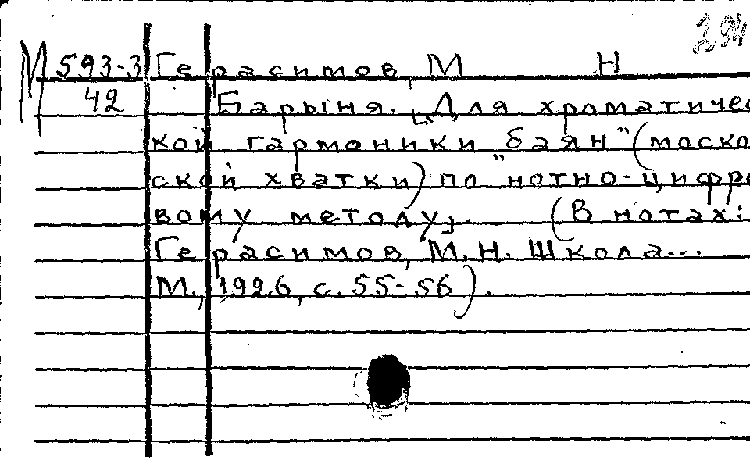 294
М 593-3 Герасимов, М Н
42 Барыня. [Для хроматичес
кой гармоники "баян" (моско
ской хватки) по "нотно-цифро
вому методу". (В нотах:
Герасимов, М.Н. Школа...
М., 1926, с. 55-56).